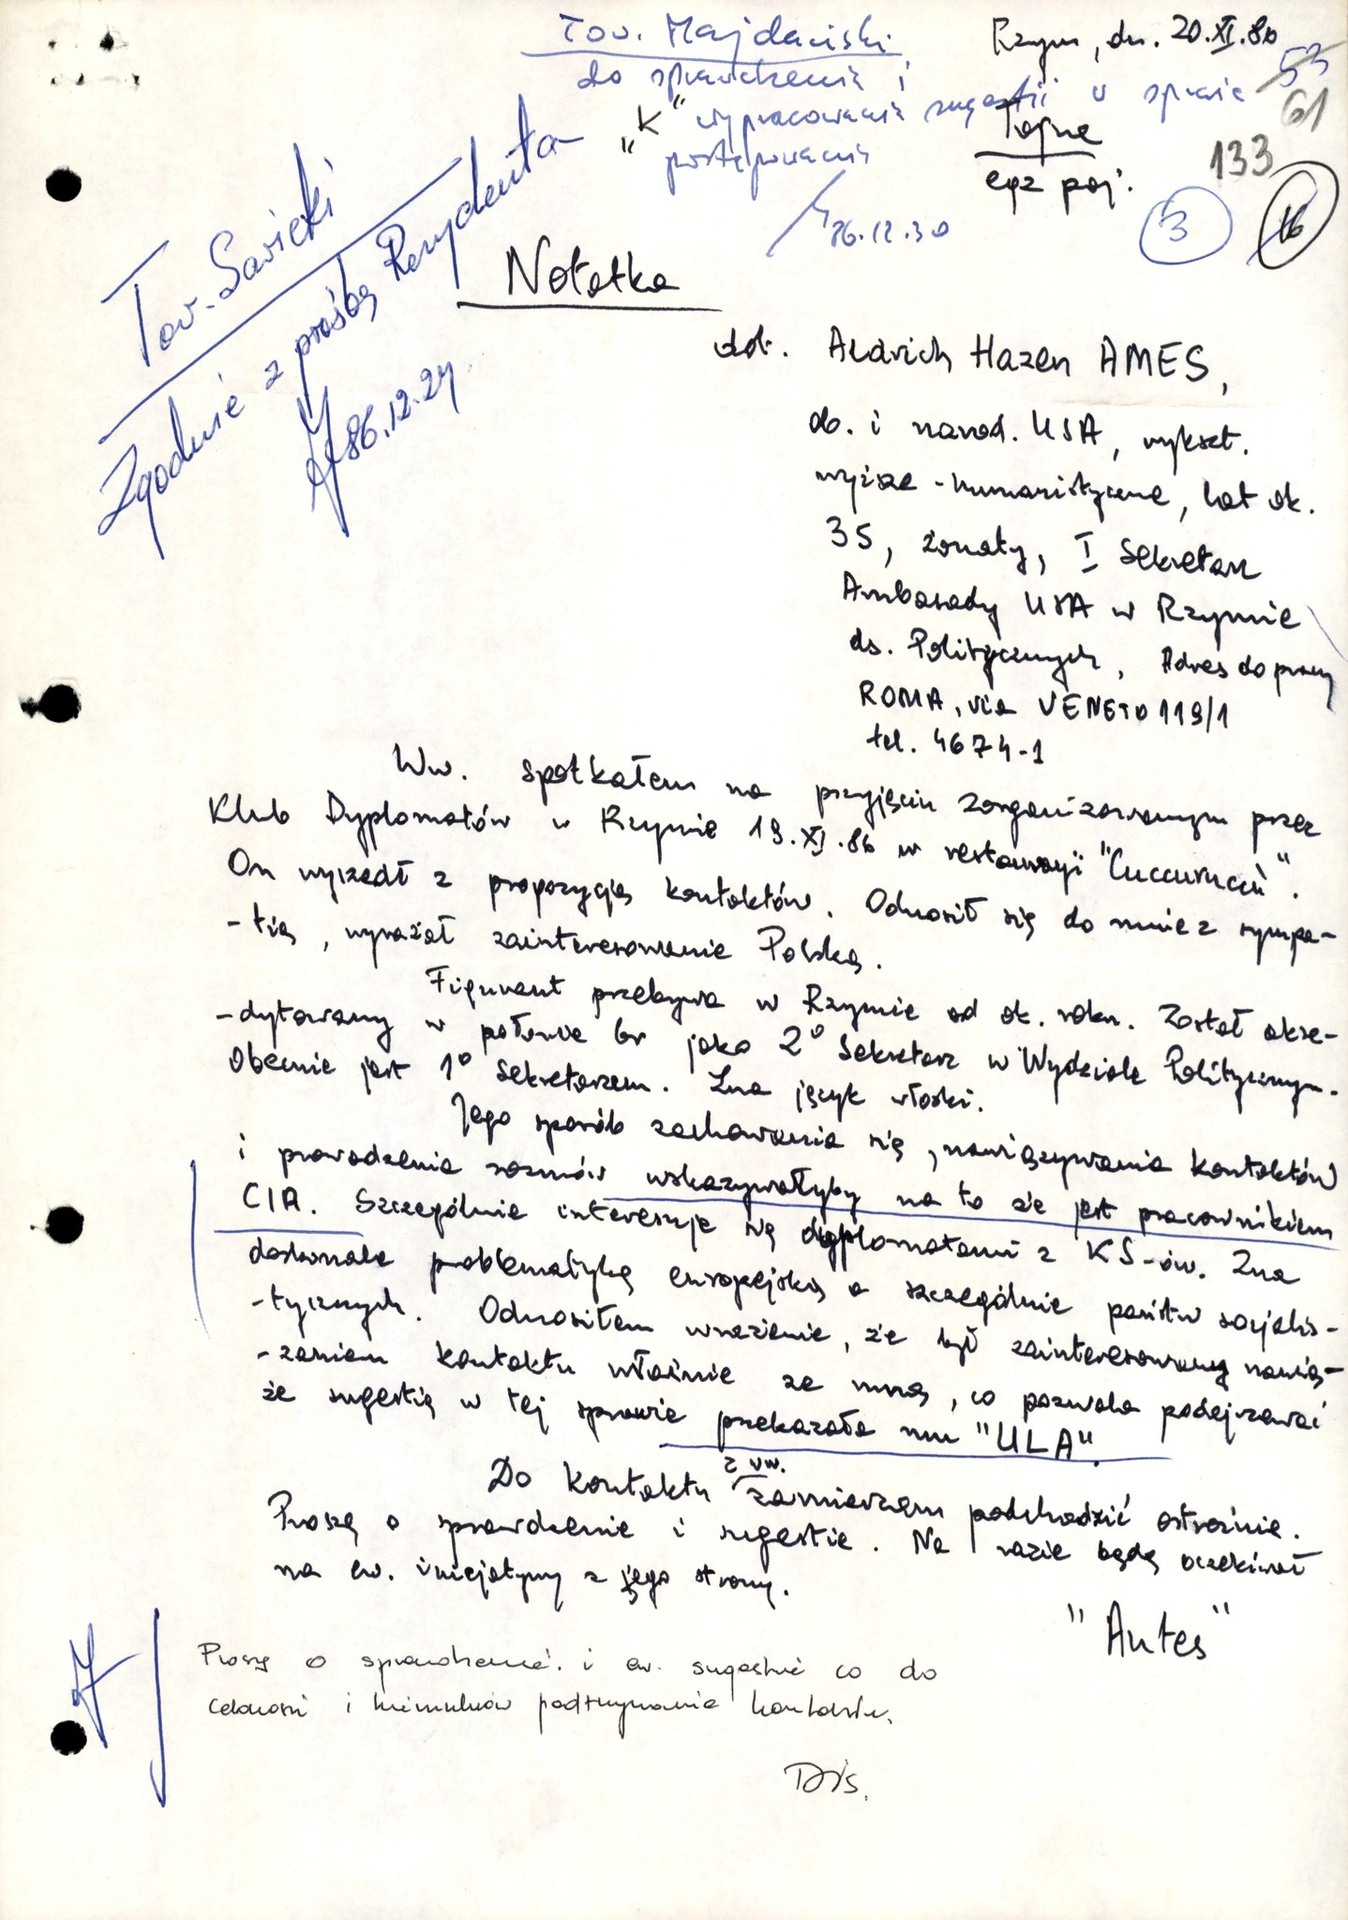 Tow. Majdański
do sprawdzenia i
"K" wypracowania sugestii w sprawie
postępowania
86.12.30
Rzym, dn. 20.XI.86
53
61
Tajne
egz poj.
133
3
16
Tow. Sawicki
Zgodnie z prośbą Rezydenta
86.12.24
Notatka
dot. Aldrich Hazen AMES,
ob. i narod. USA, wykszt.
wyższe - humanistyczne, lat ok.
35, żonaty, I Sekretarz
Ambasady USA w Rzymie
ds. Politycznych, Adres do pracy
ROMA, via VENETO 119/1
tel. 4674-1
Ww. spotkałem na przyjęciu zorganizowanym przez
Klub Dyplomatów w Rzymie 19.XI.86 w restauracji "Cuccurucù".
On wyszedł z propozycją kontaktów. Odnosił się do mnie z sympa-
-tią, wyrażał zainteresowanie Polską.
Figurant przebywa w Rzymie od ok. roku. Został akre-
-dytowany w połowie br jako 2° Sekretarz w Wydziale Politycznym.
Obecnie jest 1° Sekretarzem. Zna język włoski.
Jego sposób zachowania się, nawiązywania kontaktów
i prowadzenia rozmów wskazywałyby na to że jest pracownikiem
CIA. Szczególnie interesuje się dyplomatami z KS-ów. Zna
doskonale problematykę europejską a szczególnie państw socjalis-
-tycznych. Odnosiłem wrażenie, że był zainteresowany nawią-
-zaniem kontaktu właśnie ze mną, co pozwala podejrzewać
że sugestię w tej sprawie przekazała mu "ULA".
Do kontaktu z ww. zamierzam podchodzić ostrożnie.
Proszę o sprawdzenie i sugestie. Na razie będę oczekiwał
na ew. inicjatywy z jego strony.
"Antes"
Proszę o sprawdzenie i ew. sugestie co do
celowości i kierunków podtrzymania kontaktu.
Dis.